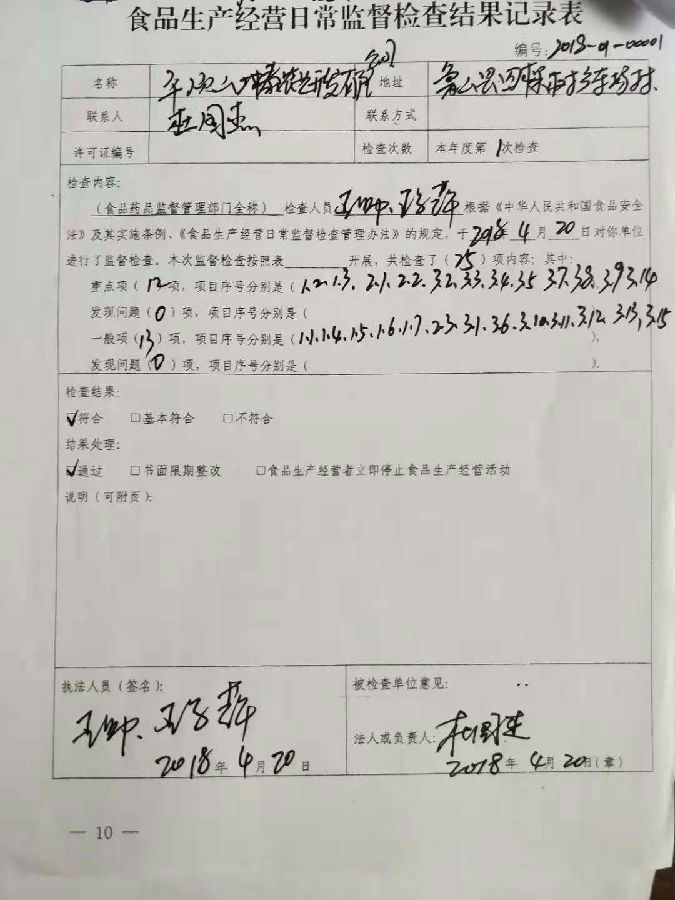 食品生产经营日常监督检查结果记录表
编号:2018-01-00001
名称 地址
联系人 杜国杰 联系方式
许可证编号 检查次数 本年度第1次检查
检查内容:
(食品药品监督管理部门全称) 检查人员 根据《中华人民共和国食品安全
法》及其实施条例、《食品生产经营日常监督检查管理办法》的规定,于2018年4月20日对你单位
进行了监督检查。本次监督检查按照表 开展,共检查了(25)项内容;其中:
重点项(12)项,项目序号分别是(1.2.1.3. 2.1.2.2. 3.2.3.3.3.4.3.5 3.7.3.8.3.9 3.14
发现问题(0)项,项目序号分别是(
一般项(13)项,项目序号分别是(1.1.1.4.1.5.1.6.1.7.2.3.3.1.3.6.3.10.3.11.3.12. 3.13,3.15
发现问题(0)项,项目序号分别是( ).
检查结果:
☑符合 □基本符合 □不符合
结果处理:
☑通过 □书面限期整改 □食品生产经营者立即停止食品生产经营活动
说明(可附页):
执法人员(签名):
2018年4月20日
被检查单位意见:
法人或负责人:
2018年4月20日(章)
— 10 —